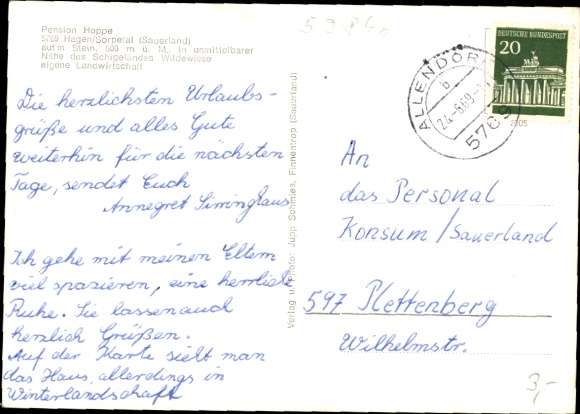 Pension Hoppe
5769 Hagen/Sorpetal (Sauerland)
auf'm Stein, 503 m ü. M., in unmittelbarer
Nähe des Schigeländes Wildewiese
eigene Landwirtschaft
Die herzlichsten Urlaubs-
grüße und alles Gute
weiterhin für die nächsten
Tage, sendet Euch
Annegret Sirringhaus
Ich gehe mit meinen Eltern
viel spazieren, eine herrliche
Ruhe. Sie lassen auch
herzlich Grüßen.
Auf der Karte sieht man
das Haus, allerdings in
Winterlandschaft
Verlag u. Photo: Jupp Schmies, Finnentrop (Sauerland)
DEUTSCHE BUNDESPOST
20
ALLENDORF
b
24.-6.69
5769
An
das Personal
Konsum/Sauerland
597 Plettenberg
Wilhelmstr.
3,-